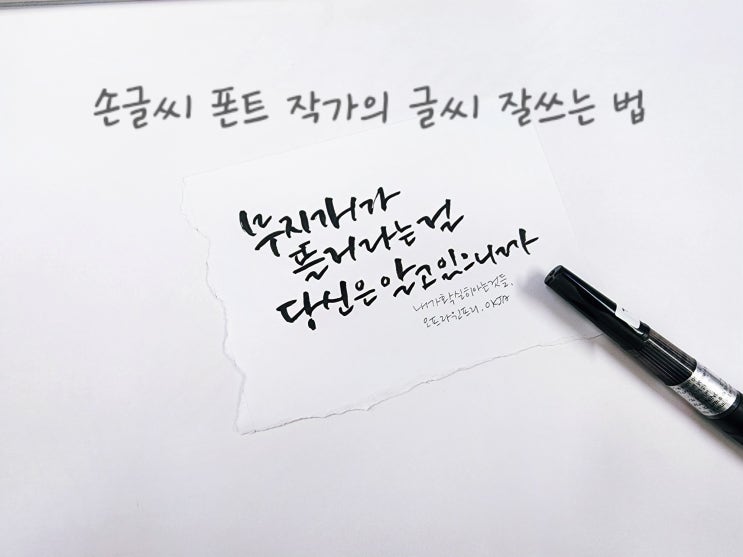 손글씨 폰트 작가의 글씨 잘쓰는 법
무지개가
뜰거라는걸
당신은알고있으니까
내가확실히아는것들.
오프라윈프리. OKJA